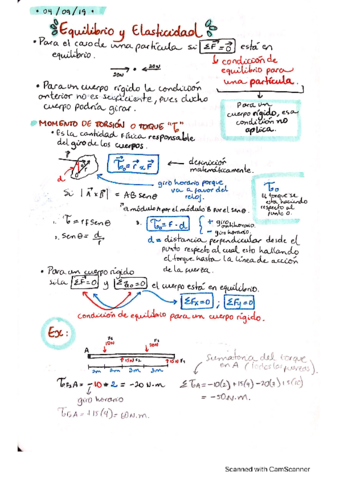 • 04/09/19 •
Equilibrio y Elasticidad
• Para el caso de una partícula si ΣF⃗=0⃗ está en equilibrio.
20N
20N
↳ condición de equilibrio para una partícula.
• Para un cuerpo rígido la condición anterior no es suficiente, pues dicho cuerpo podría girar.
Para un cuerpo rígido, esa condición no aplica.
MOMENTO DE TORSIÓN O TORQUE "τ".
• Es la cantidad física responsable del giro de los cuerpos.
τ⃗₀ = r⃗ x F⃗ → definición matemáticamente.
giro horario porque va a favor del reloj.
Si |A⃗ x B⃗| = AB senθ
↳ módulo A por el módulo B por el senθ.
el torque se está haciendo respecto al punto 0.
1. τ = rF senθ
2. senθ = d/r
3. τ₀ = F · d
+ giro
- giro horario.
d = distancia perpendicular desde el punto respecto al cual esto hallando el torque hasta la línea de acción de la fuerza.
• Para un cuerpo rígido
si la ΣF⃗=0 y Στ₀=0 el cuerpo está en equilibrio.
ΣFx=0 ; ΣFy=0
condición de equilibrio para un cuerpo rígido.
Ex:
A
2m 2m 2m 2m
τF₁A = -10 * 2 = -20 N·m
giro horario
Sumatoria del torque en A
= -50N.m.
Scanned with CamScanner